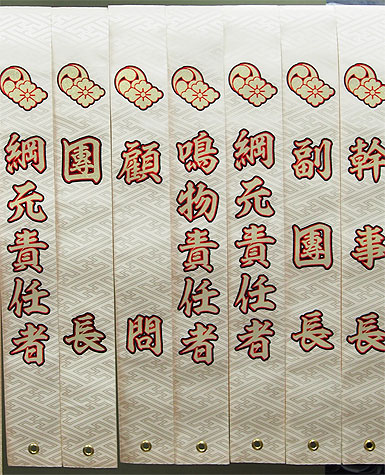 幹事長
副團長
綱元責任者
鳴物責任者
顧問
團長
綱元責任者